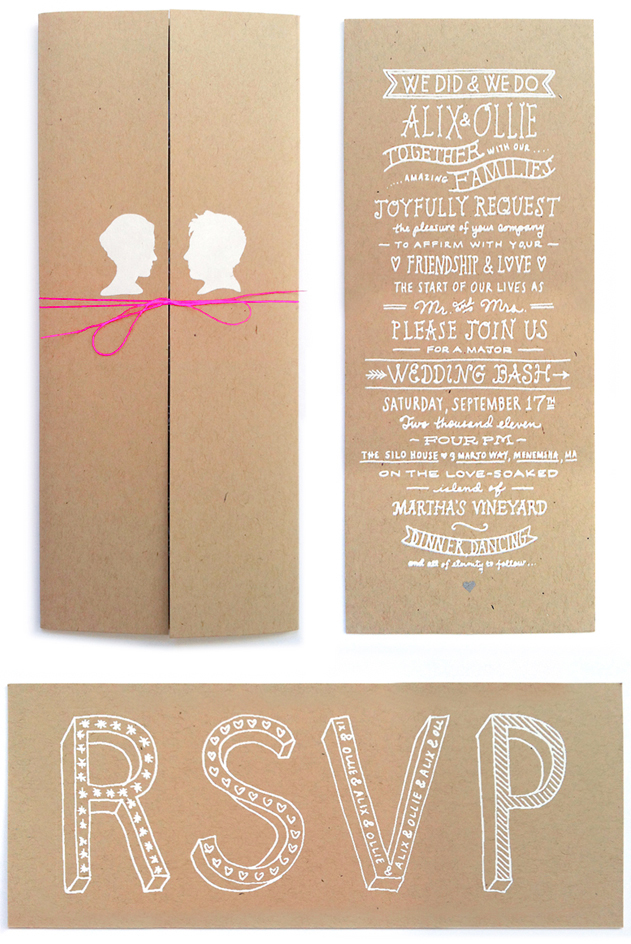 WE DID & WE DO
ALIX & OLLIE
TOGETHER WITH OUR ....
..... AMAZING FAMILIES
JOYFULLY REQUEST
the pleasure of your company
— TO AFFIRM WITH YOUR —
♡ FRIENDSHIP & LOVE ♡
THE START OF OUR LIVES AS
Mr. and Mrs.
PLEASE JOIN US
— FOR A MAJOR —
WEDDING BASH
SATURDAY, SEPTEMBER 17TH
Two thousand eleven
~ FOUR PM ~
THE SILO HOUSE ♥ 9 MARJO WAY, MENEMSHA, MA
ON THE LOVE-SOAKED
— island of —
MARTHA'S VINEYARD
DINNER, DANCING
and all of eternity to follow...
RSVP
IX & OLLIE & ALIX & OLLIE
& ALIX & OLLIE & ALIX & OLL